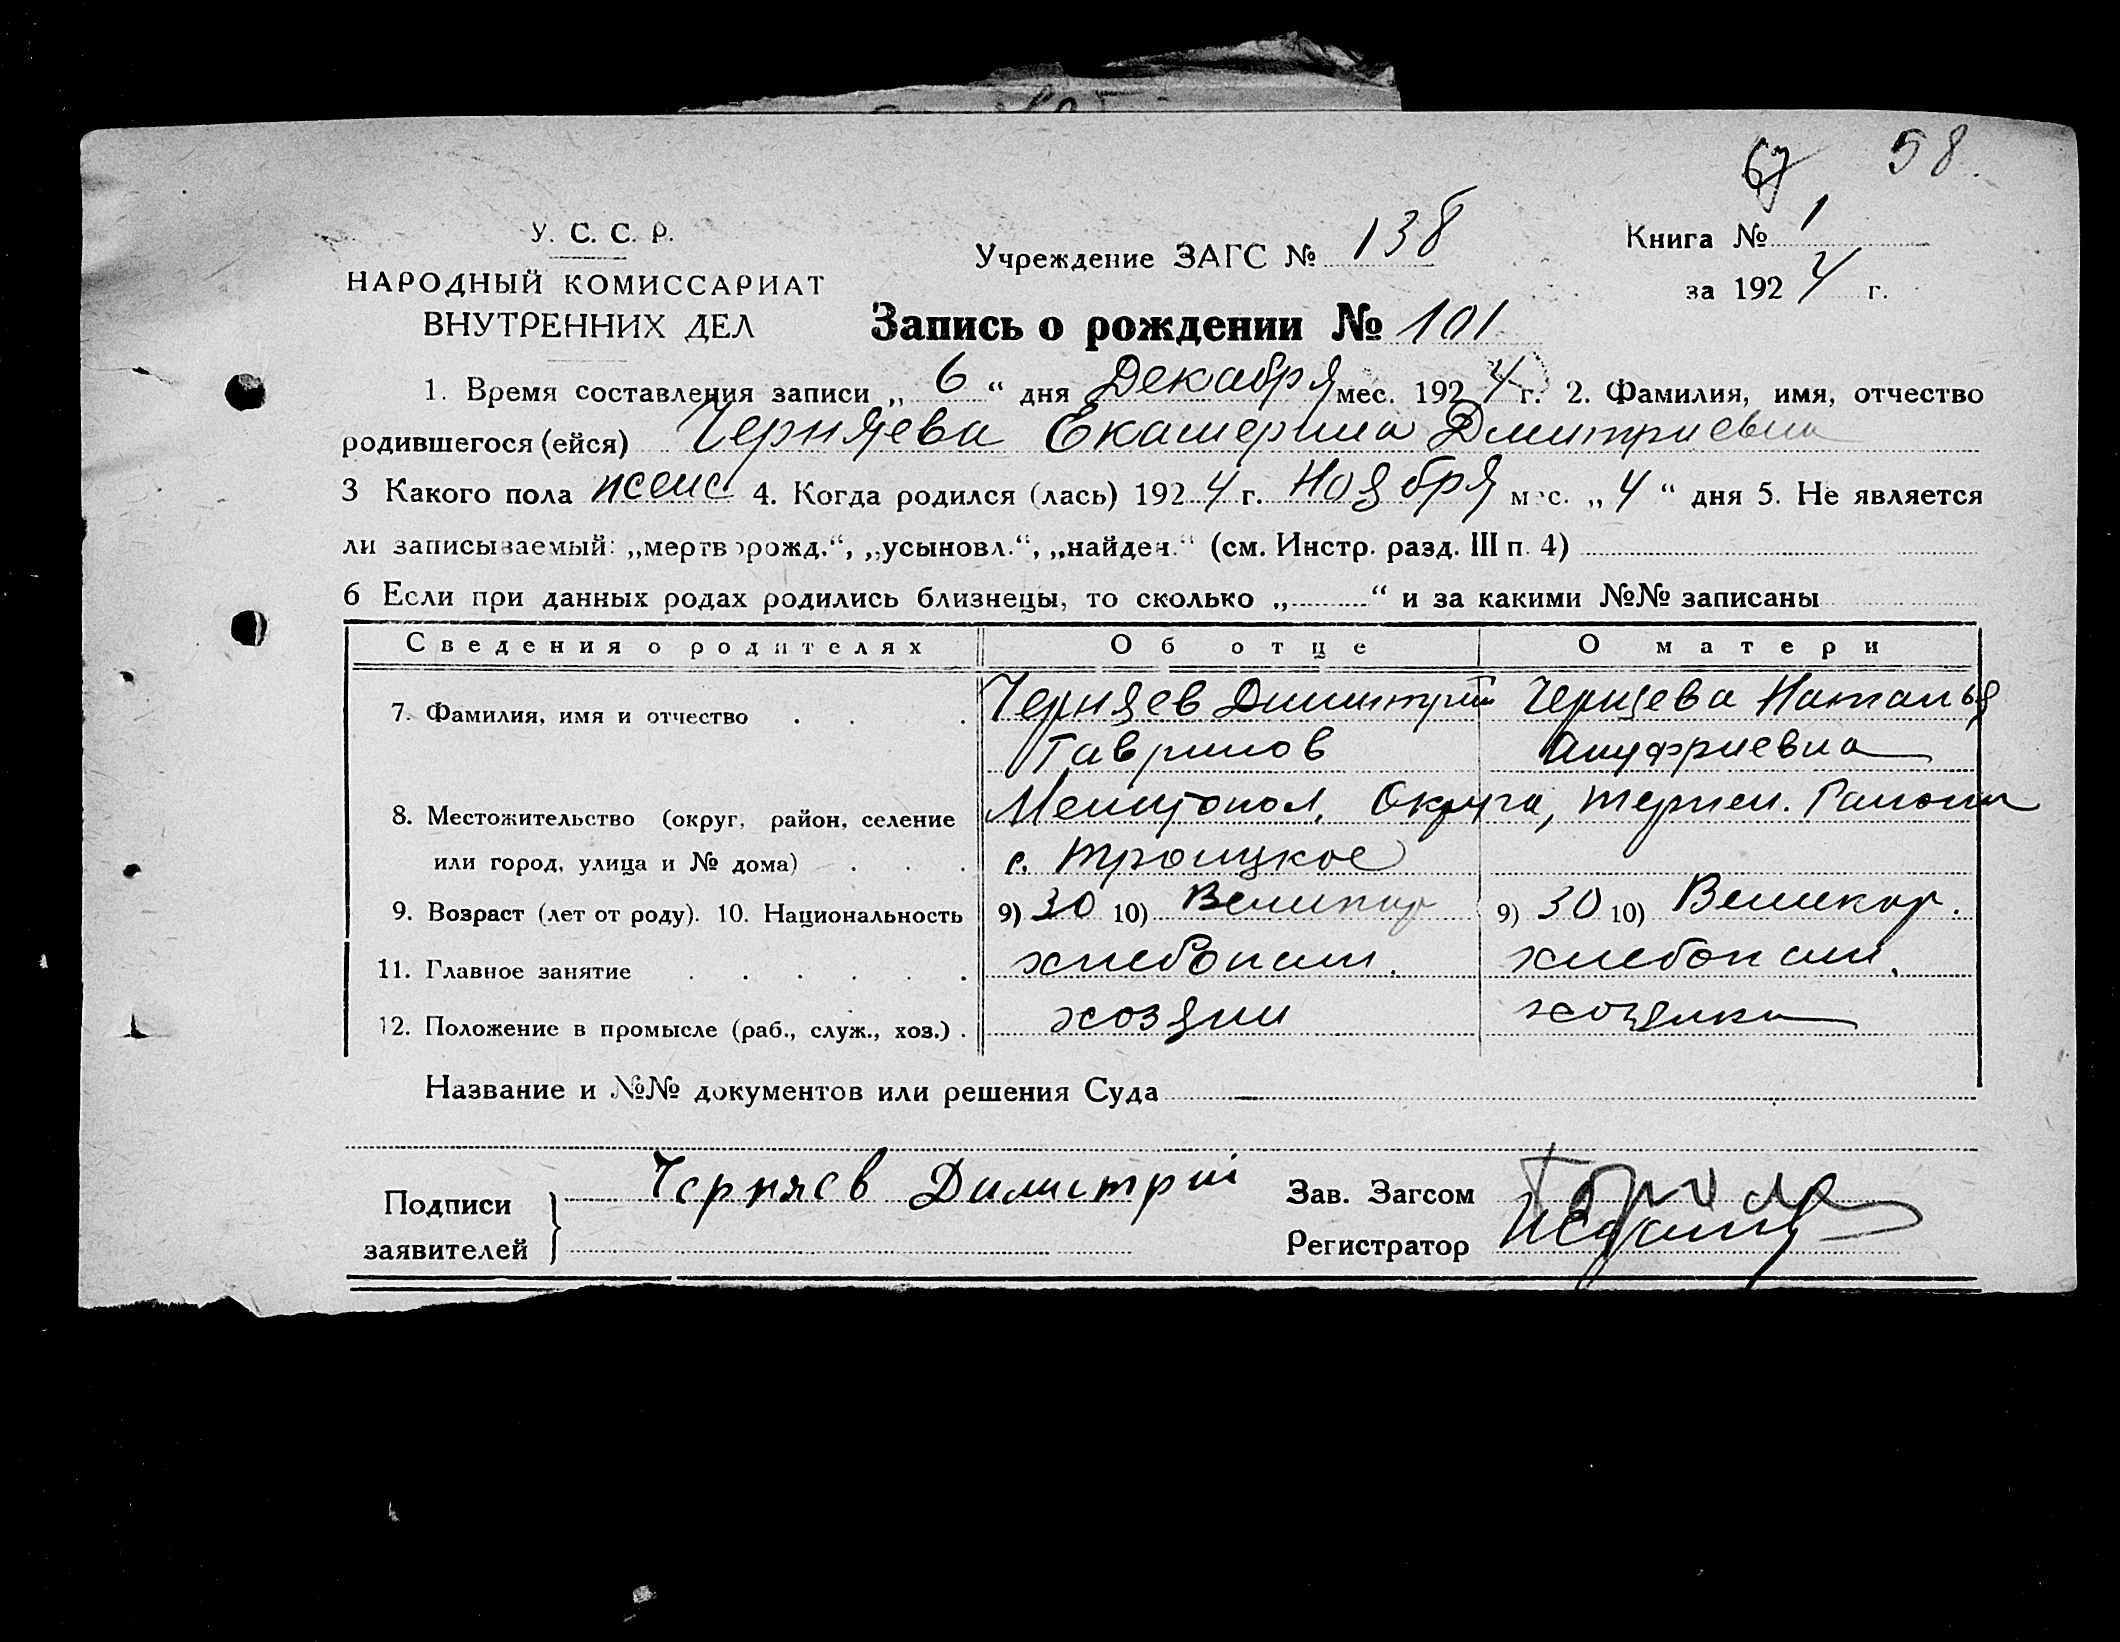 67 58
У. С. С. Р.
НАРОДНЫЙ КОМИССАРИАТ
ВНУТРЕННИХ ДЕЛ
Учреждение ЗАГС № 138
Книга № 1
за 1924 г.
Запись о рождении № 101
1. Время составления записи „ 6 “ дня Декабря мес. 1924 г. 2. Фамилия, имя, отчество
родившегося (ейся) Черняева Екатерина Дмитриевна
3 Какого пола женс 4. Когда родился (лась) 1924 г. Ноября мес. „ 4 “ дня 5. Не является
ли записываемый: „мертворожд.“, „усыновл.“, „найден.“ (см. Инстр. разд. III п. 4)
6 Если при данных родах родились близнецы, то сколько „ “ и за какими №№ записаны
Сведения о родителях Об отце О матери
7. Фамилия, имя и отчество Черняев Димитрий Черняева Наталья
Гаврилов Ануфриевна
8. Местожительство (округ, район, селение Мелитопол. Округа, Терпен. Района
или город, улица и № дома) с. Троицкое
9. Возраст (лет от роду). 10. Национальность 9) 30 10) Великор 9) 30 10) Великор.
11. Главное занятие хлебопаш. хлебопаш.
12. Положение в промысле (раб., служ., хоз.) хозяин хозяйка
Название и №№ документов или решения Суда
Подписи
заявителей
Черняев Димитрий
Зав. Загсом
Регистратор